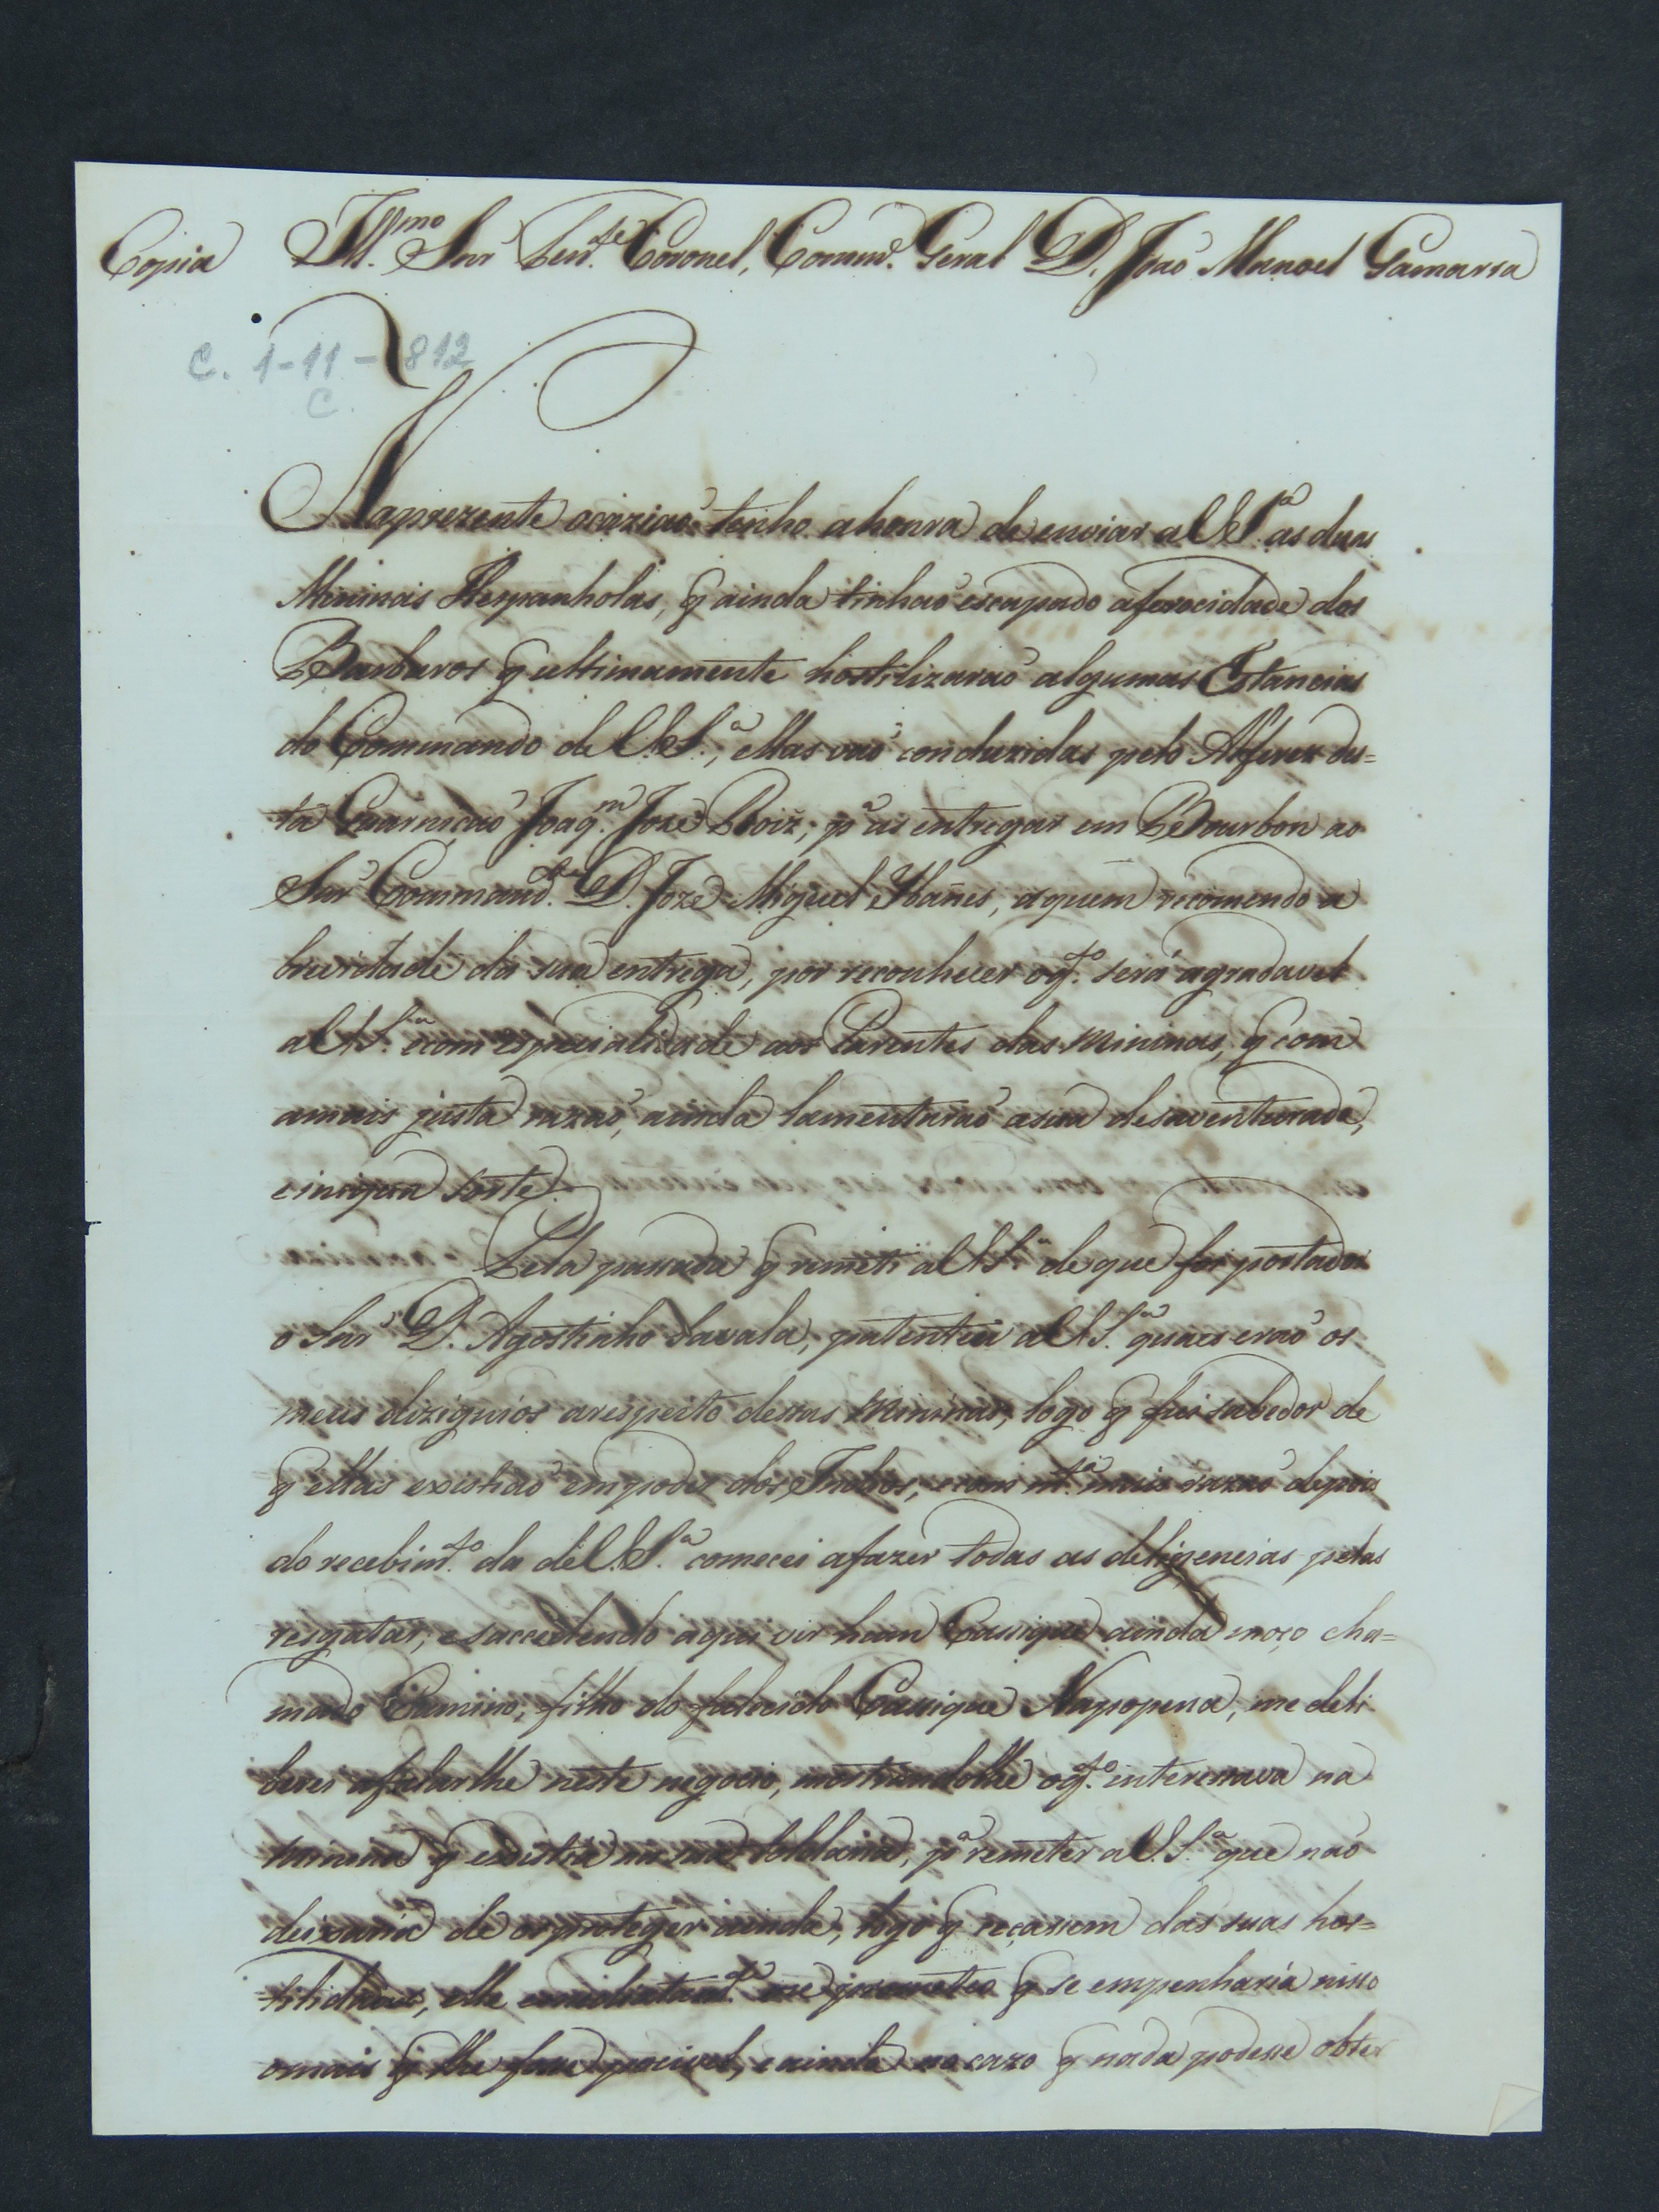 Copia Ill.mo Snr' Ten.te Coronel, Comm.de Geral D. Joaõ Manoel Gamarra
C. 1-11-812
C.
Naprezente ocaziaõ tenho ahonra de enviar a V.S.a as duas
Mininas Hespanholas, q̃ ainda tinhaõ escapado aferocidade dos
Barbaros q̃ ultimamente hostilizaraõ algumas Estancias
do Commando de V.S.a, ellas vaõ conduzidas pelo Alferes des=
ta Guarniçaõ Joaq.m Jozé Roiz, p.a as entregar em Bourbon ao
Snr' Command.te D. Jozé Miguel Ibañes, aquem recomendo a
brevidade da sua entrega, por reconhecer oq.to será agradavel
aV.S.a ecom especialidade aos Parentes das Mininas, q̃ com
amais justa razaõ, ainda lamentaraõ asua desaventurada,
e iniqua sorte.
Pela passada q̃ remeti aV.S.a de que foi portador
o Snr' D. Agostinho Savala, patentiei aV.S.a quaes eraõ os
meus dizignios arespeito dessas Mininas, logo q̃ fui sabedor de
q̃ ellas existiaõ empoder dos Indios, ecom m.ta mais razaõ depois
do recebim.to da de V.S.a comecei afazer todas as deligencias pelas
resgatar, esuccedendo aqui vir hum Cacique ainda moço cha=
mado Camino, filho do falecido Cacique Nagopena, me deli
berei afalarlhe neste negocio, mostrandolhe oq.to interessava na
Minina q̃ existia na sua Toldaria, p.a remeter aV.S.a que naõ
deixaria de osproteger ainda, logo q̃ seçassem das suas hos=
tilidades, elle emediatam.te me prometeo q̃ se empenharia nisso
omais q̃ lhe fosse pocivel, e ainda no cazo q̃ nada podesse obter